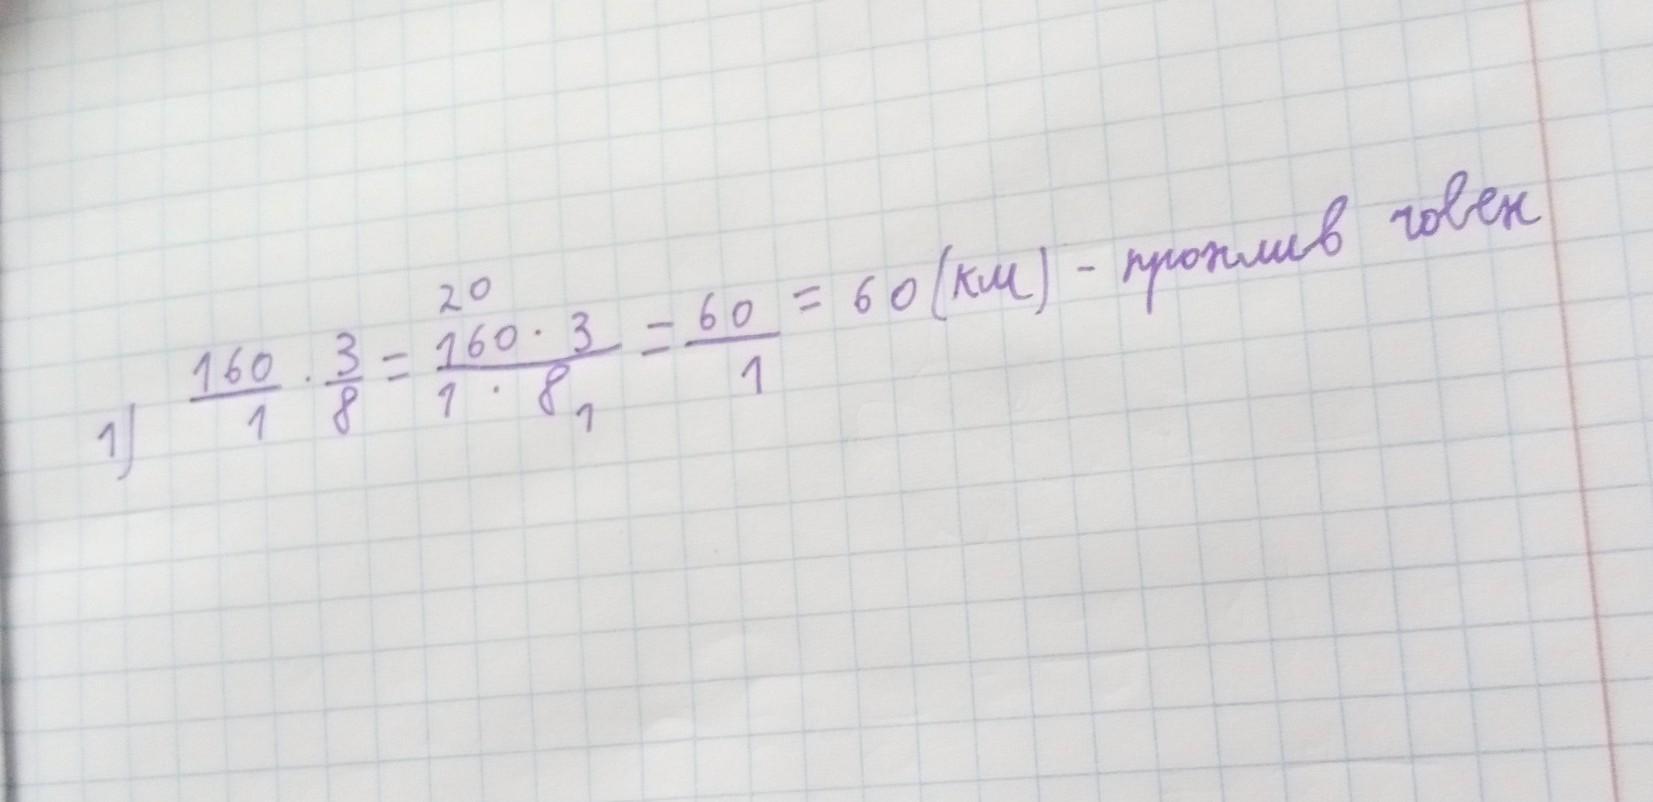 20
1) 160/1 · 3/8 = 160 · 3/1 · 8 1 = 60/1 = 60 (км) - проплив човен